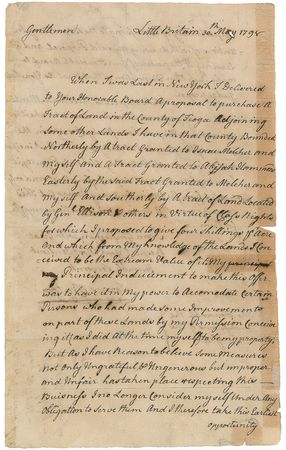 Gentlemen Little Britain 30th May 1791
When I was Last in New York I Delivered
to Your Honorable Board a proposal to purchase a
Tract of Land in the County of Tioga adjoining
some other Lands I have in that County Bounded
Northerly by a Tract granted to Isaac Melcher and
myself and a Tract Granted to Abijah Hammond
Easterly by the said Tract Granted to Melcher and
myself and Southerly by a Tract of Land Located
by Genl & others in Virtue of Class Rights
for which I proposed to give four Shillings pr Acre
and which from My Knowledge of the Lands I Con
ceived to be the Extream Value of it My
Principal Inducement to make this Offer
was to have it in My power to Accomodate Certain
Persons who had made Some Improvements
on part of these Lands by my Permission Conceiv
ing it as I did At the time myself to be my property,
But As I have Reason to believe some Measures
not Only Ungratiful & Ungenerous but improper
and Unfair has taken place respecting this
Buisness I no Longer Consider myself Under Any
Obligation to Serve them And I therefore take this Earliest
opportunity